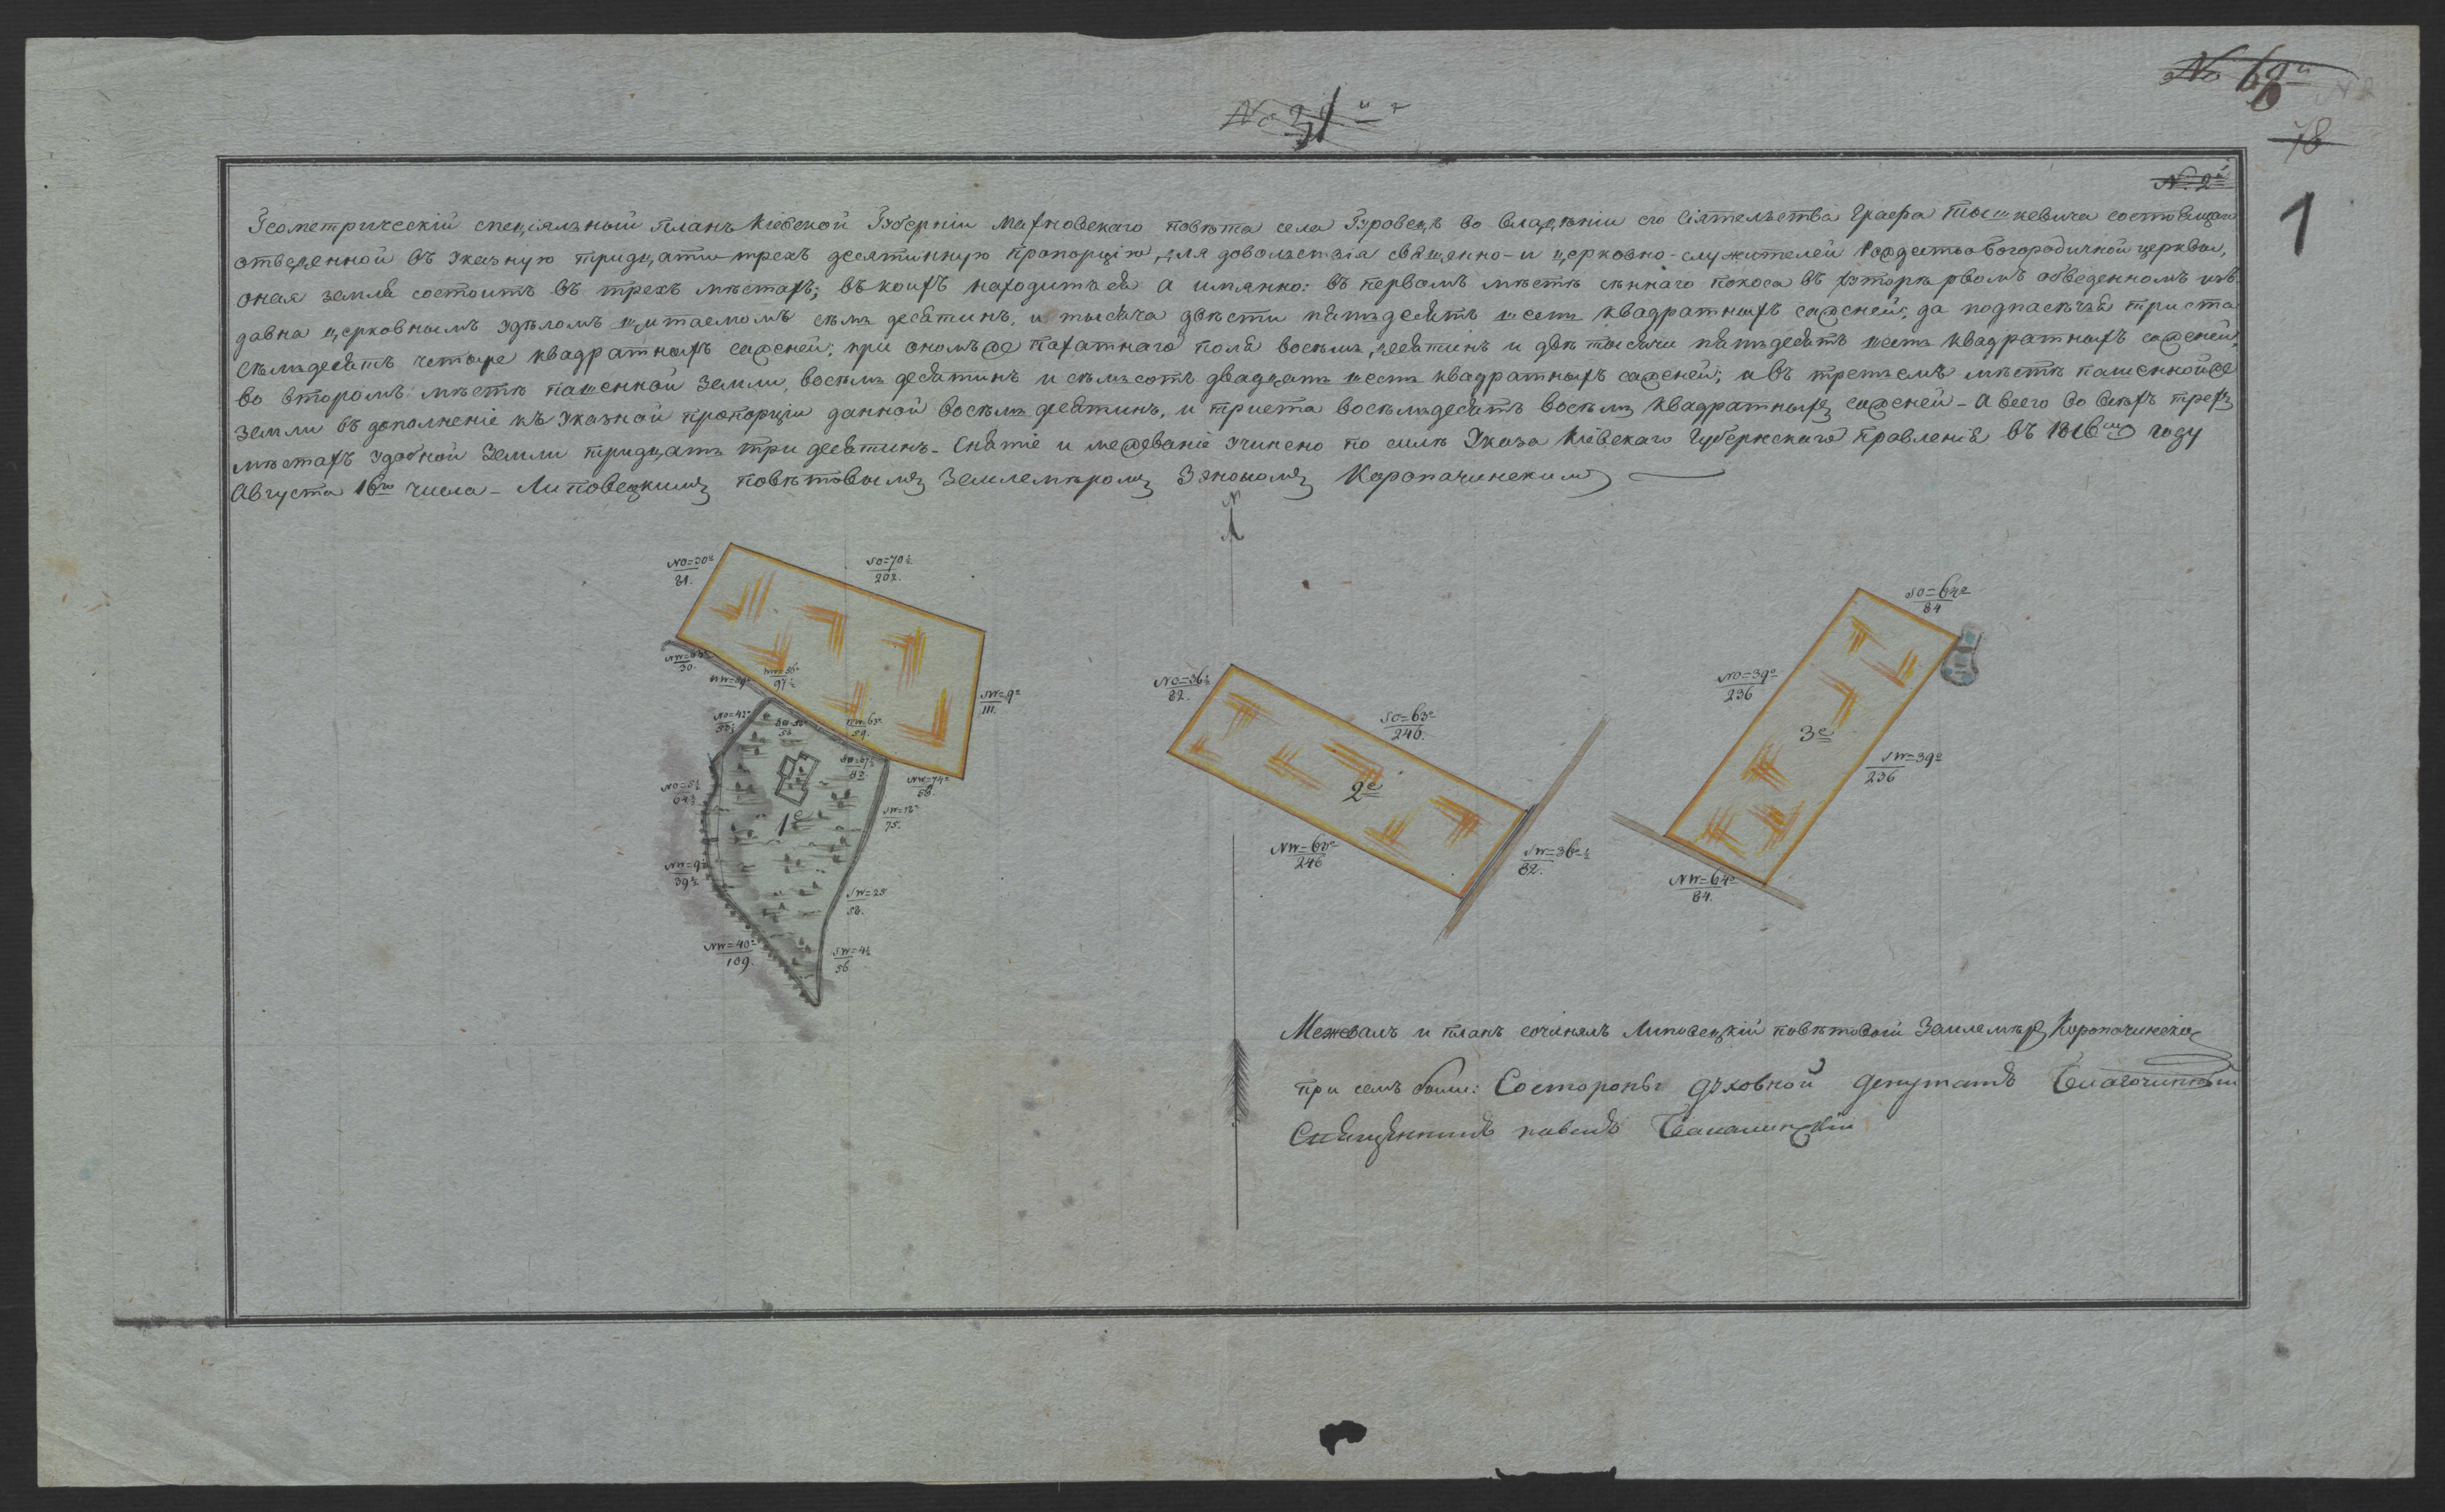 No 21
No 69
78
1
N. 2й
Геометрическій спеціяльный планъ Кіевской Губерніи Махновскаго повѣта села Гуровецъ во владѣніи его Сіятельства Графа Тышкевича состоящаго
отведенной въ указную тридцати-трехъ десятинную пропорцію, для довольствія священно-и церковно-служителей Рождество Богородичной церквы,
оная земля состоитъ въ трехъ мѣстахъ; въ коихъ находитьця а имянно: въ первомъ мѣстѣ сѣннаго покоса въ обведенномъ изъ
давна церковнымъ щитаемомъ сѣмъ десятинъ, и тысяча двѣсти пятьдесятъ шесть квадратныхъ саженей; да подпасѣчья триста
сѣмьдесятъ четыре квадратныхъ саженей; при ономъ же пахатнаго поля восѣмь десятинъ и двѣ тысячи пятьдесятъ шесть квадратныхъ саженей,
во второмъ мѣстѣ пашенной земли, восѣмъ десятинъ и сѣмъсотъ двадцать шесть квадратныхъ саженей; и въ третьемъ мѣстѣ пашенной же
земли въ дополненіе къ указной пропорціи данной восѣмъ десятинъ, и триста восѣмьдесятъ восѣмъ квадратныхъ саженей - А всего во всѣхъ трехъ
мѣстахъ удобной земли тридцать три десятинъ - Снятіе и межеваніе учинено по силѣ Указа Кіевскаго Губернскаго Правленія въ 1816мъ году
Августа 16го числа - Липовецкимъ повѣтовымъ Землемѣромъ Коропачинскимъ
N
NO=30½
81.
SO=70½
202.
SO=64°
84
NW=63
30.
NW=56°
97½
NO=36½
82.
NO=39°
236
SW=9°
111.
NO=42°
NW=63°
59.
SO=63°
246.
3е
SW=39°
236
NW=74°
58.
2е
1е
75.
NW=63°
246
SW=36°½
82.
NW=9½
39½
SW=25
58.
NW=64°
84.
NW=40°
109.
SW=4½
56
Межевалъ и планъ сочинялъ Липовецкій повѣтовый Землемѣръ Коропачинскій
при семъ были: Состороны духовной депутатъ Благочинный
Священникъ павелъ